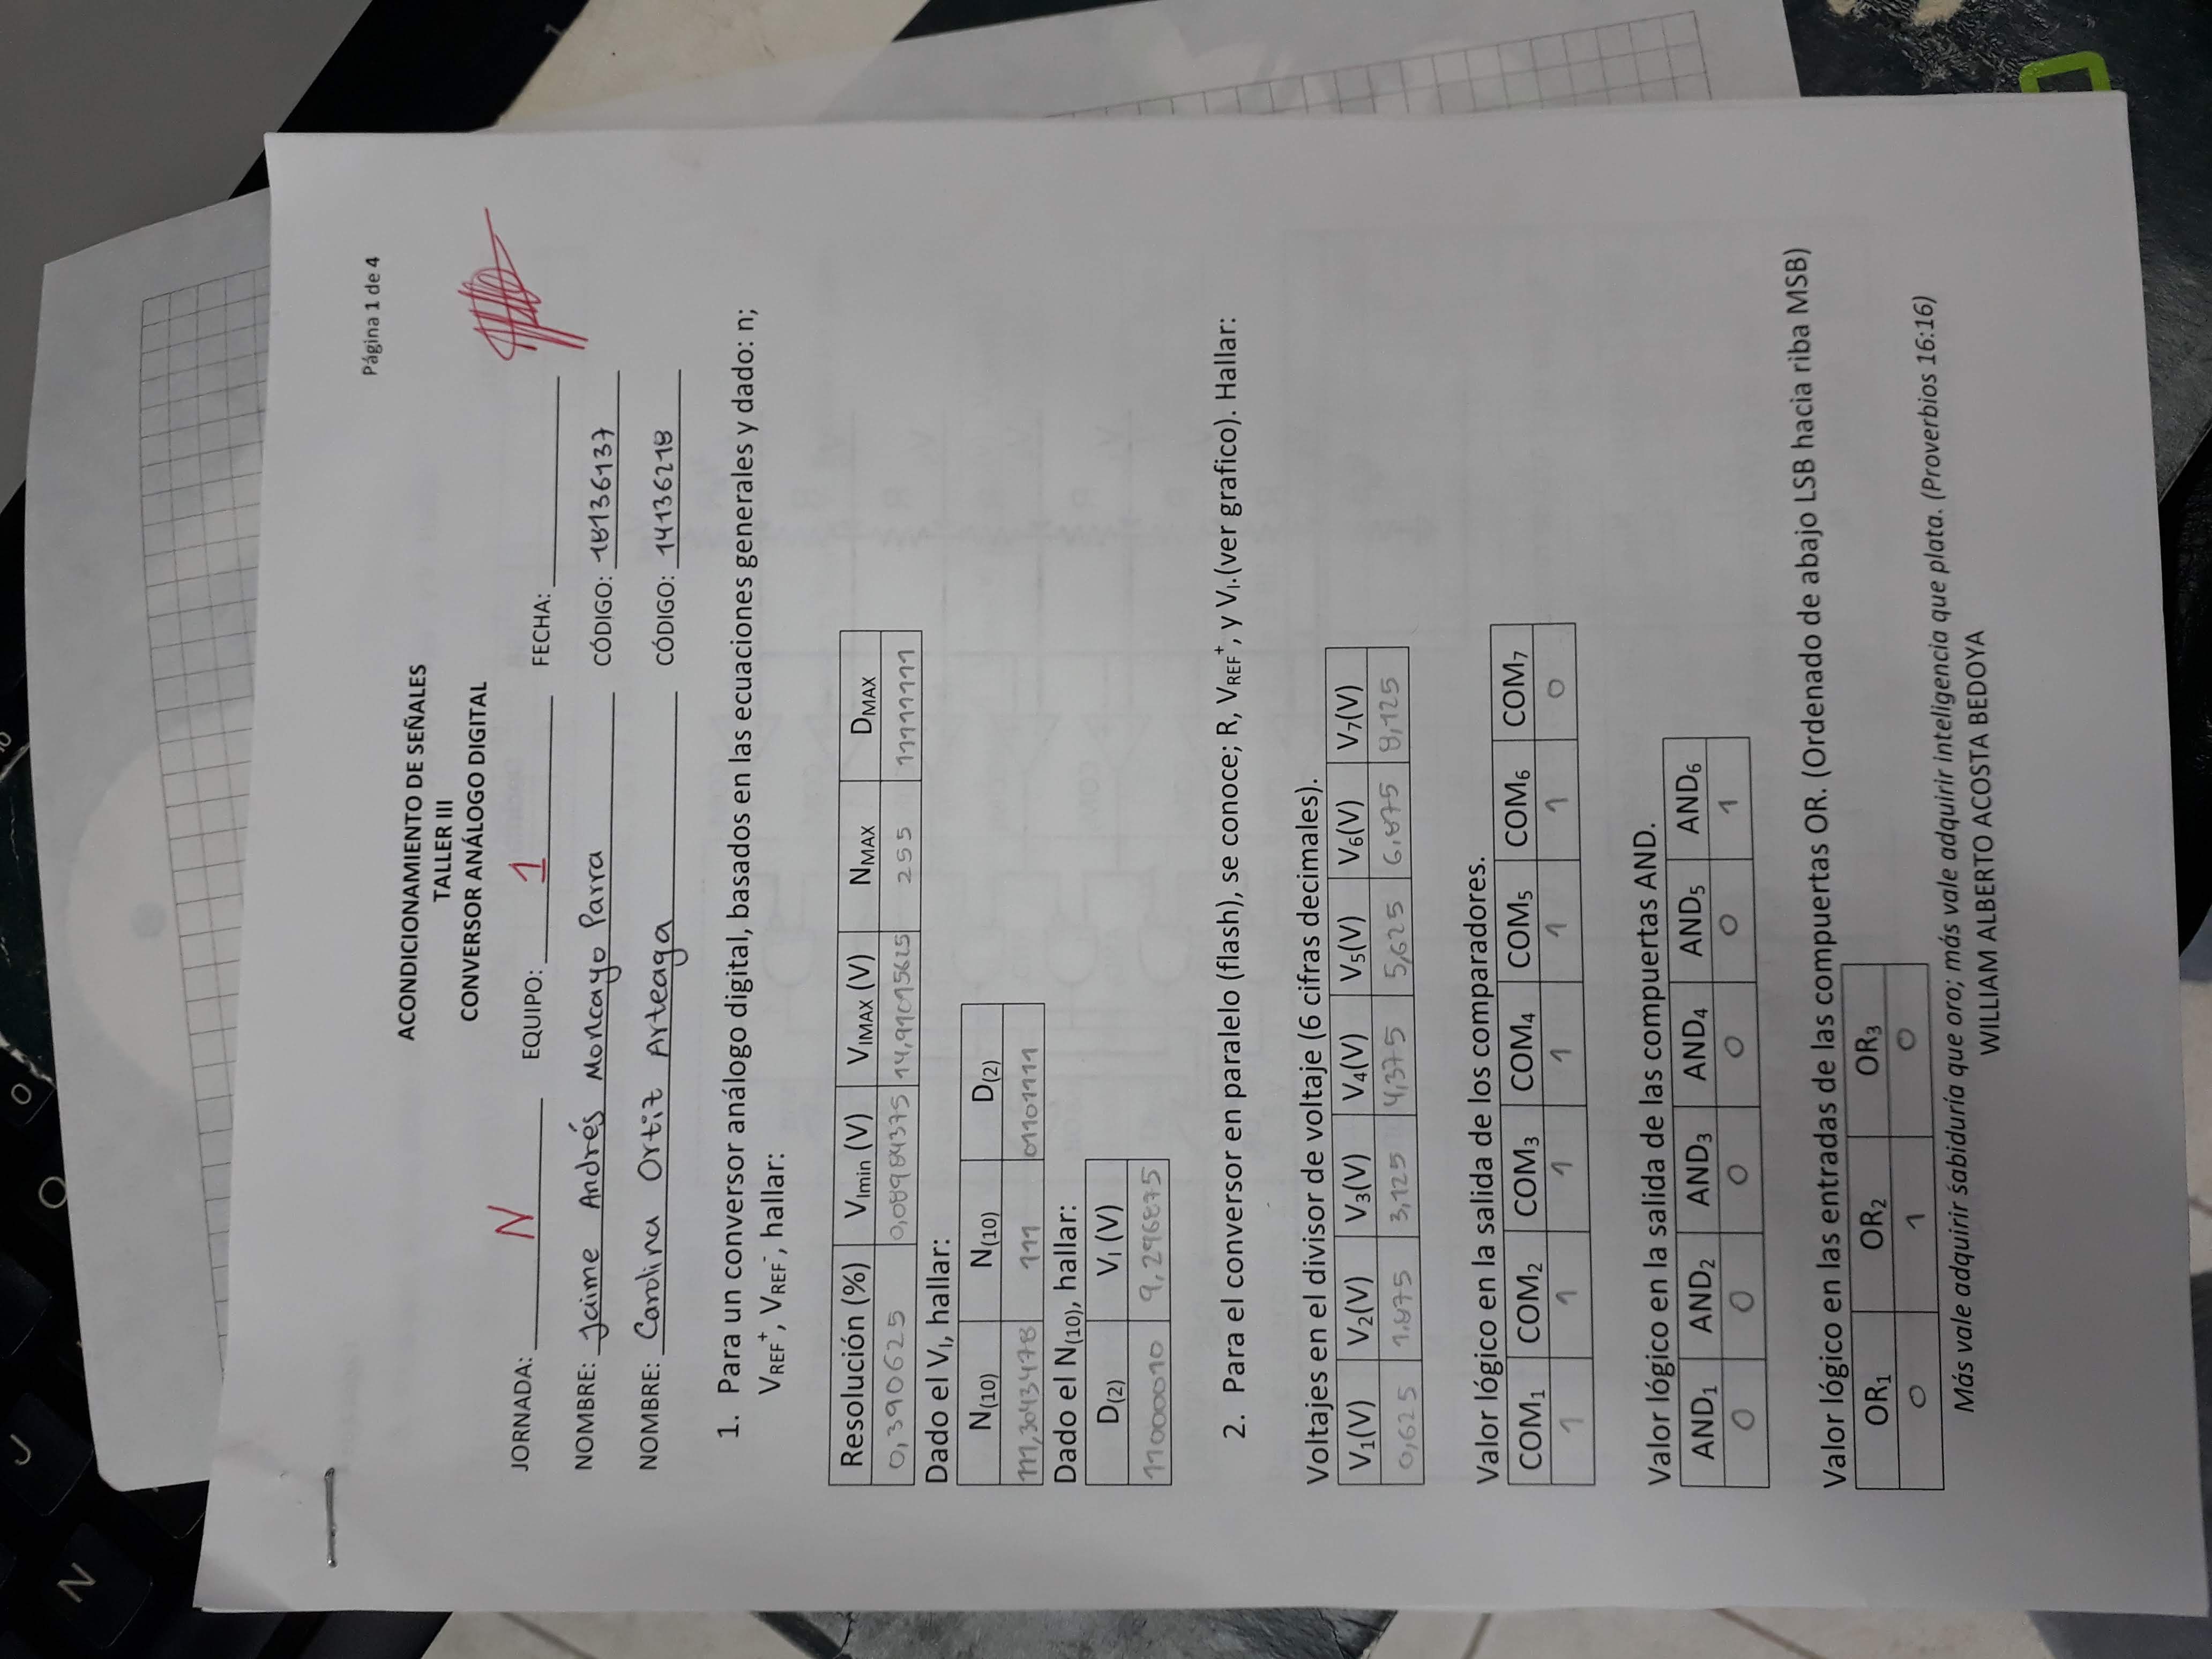 Página 1 de 4
ACONDICIONAMIENTO DE SEÑALES
TALLER III
CONVERSOR ANÁLOGO DIGITAL
JORNADA: N EQUIPO: 1 FECHA:
NOMBRE: Jaime Andrés Moncayo Parra CÓDIGO: 18136137
NOMBRE: Carolina Ortiz Arteaga CÓDIGO: 14136218
1. Para un conversor análogo digital, basados en las ecuaciones generales y dado: n;
VREF+, VREF-, hallar:
Resolución (%) VImin (V) VIMAX (V) NMAX DMAX
0,390625 0,08984375 14,91015625 255 11111111
Dado el VI, hallar:
N(10) N(10) D(2)
111,3043478 111 01101111
Dado el N(10), hallar:
D(2) VI (V)
11000010 9,296875
2. Para el conversor en paralelo (flash), se conoce; R, VREF+, y VI.(ver grafico). Hallar:
Voltajes en el divisor de voltaje (6 cifras decimales).
V1(V) V2(V) V3(V) V4(V) V5(V) V6(V) V7(V)
0,625 1,875 3,125 4,375 5,625 6,875 8,125
Valor lógico en la salida de los comparadores.
COM1 COM2 COM3 COM4 COM5 COM6 COM7
1 1 1 1 1 1 0
Valor lógico en la salida de las compuertas AND.
AND1 AND2 AND3 AND4 AND5 AND6
0 0 0 0 0 1
Valor lógico en las entradas de las compuertas OR. (Ordenado de abajo LSB hacia riba MSB)
OR1 OR2 OR3
0 1 0
Más vale adquirir sabiduría que oro; más vale adquirir inteligencia que plata. (Proverbios 16:16)
WILLIAM ALBERTO ACOSTA BEDOYA
N
J
O
O